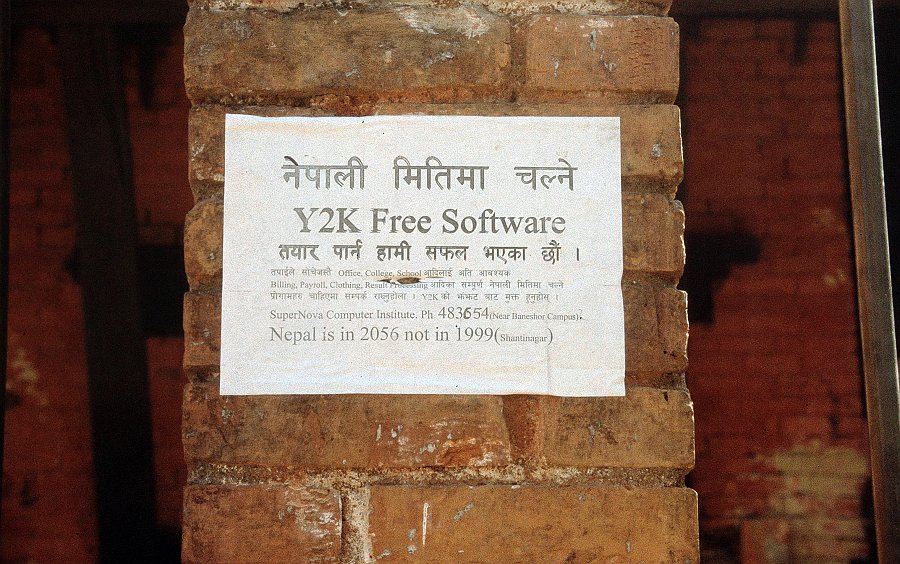 नेपाली मितिमा चल्ने
Y2K Free Software
तयार पार्न हामी सफल भएका छौं ।
तपाईले सोचेजस्तै Office, College, School आदिलाई अति आवश्यक
Billing, Payroll, Clothing, Result Processing आदिका सम्पूर्ण नेपाली मितिमा चल्ने
प्रोग्रामहरु चाहिएमा सम्पर्क राख्नुहोला । Y2K को झंझट बाट मुक्त हुनुहोस् ।
SuperNova Computer Institute. Ph 483654(Near Baneshor Campus).
Nepal is in 2056 not in 1999(Shantinagar)